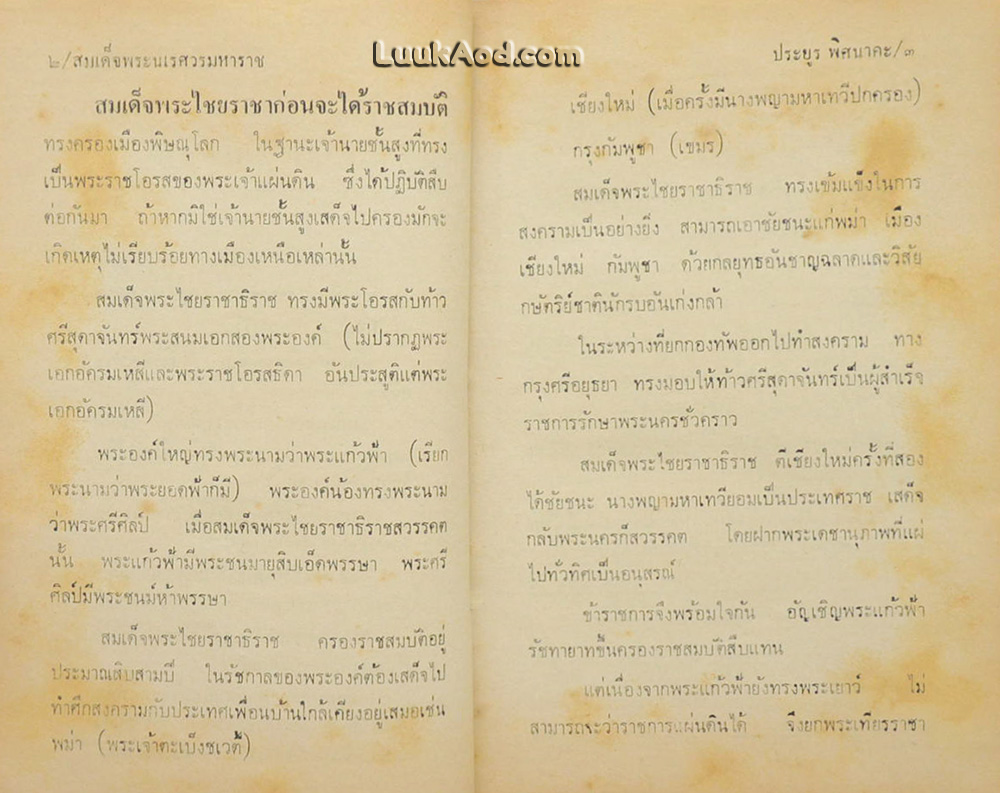 LuukAod.com
๒/สมเด็จพระนเรศวรมหาราช
สมเด็จพระไชยราชาก่อนจะได้ราชสมบัติ
ทรงครองเมืองพิษณุโลก ในฐานะเจ้านายชั้นสูงที่ทรง
เป็นพระราชโอรสของพระเจ้าแผ่นดิน ซึ่งได้ปฏิบัติสืบ
ต่อกันมา ถ้าหากมิใช่เจ้านายชั้นสูงเสด็จไปครองมักจะ
เกิดเหตุไม่เรียบร้อยทางเมืองเหนือเหล่านั้น
สมเด็จพระไชยราชาธิราช ทรงมีพระโอรสกับท้าว
ศรีสุดาจันทร์พระสนมเอกสองพระองค์ (ไม่ปรากฏพระ
เอกอัครมเหสีและพระราชโอรสธิดา อันประสูติแต่พระ
เอกอัครมเหสี)
พระองค์ใหญ่ทรงพระนามว่าพระแก้วฟ้า (เรียก
พระนามว่าพระยอดฟ้าก็มี) พระองค์น้องทรงพระนาม
ว่าพระศรีศิลป์ เมื่อสมเด็จพระไชยราชาธิราชสวรรคต
นั้น พระแก้วฟ้ามีพระชนมายุสิบเอ็ดพรรษา พระศรี
ศิลป์มีพระชนม์ห้าพรรษา
สมเด็จพระไชยราชาธิราช ครองราชสมบัติอยู่
ประมาณสิบสามปี ในรัชกาลของพระองค์ต้องเสด็จไป
ทำศึกสงครามกับประเทศเพื่อนบ้านใกล้เคียงอยู่เสมอเช่น
พม่า (พระเจ้าตะเบ็งชเวตี้)
ประยูร พิศนาคะ/๓
เชียงใหม่ (เมื่อครั้งมีนางพญามหาเทวีปกครอง)
กรุงกัมพูชา (เขมร)
สมเด็จพระไชยราชาธิราช ทรงเข้มแข็งในการ
สงครามเป็นอย่างยิ่ง สามารถเอาชัยชนะแก่พม่า เมือง
เชียงใหม่ กัมพูชา ด้วยกลยุทธอันชาญฉลาดและวิสัย
กษัตริย์ชาตินักรบอันเก่งกล้า
ในระหว่างที่ยกกองทัพออกไปทำสงคราม ทาง
กรุงศรีอยุธยา ทรงมอบให้ท้าวศรีสุดาจันทร์เป็นผู้สำเร็จ
ราชการรักษาพระนครชั่วคราว
สมเด็จพระไชยราชาธิราช ตีเชียงใหม่ครั้งที่สอง
ได้ชัยชนะ นางพญามหาเทวียอมเป็นประเทศราช เสด็จ
กลับพระนครก็สวรรคต โดยฝากพระเดชานุภาพที่แผ่
ไปทั่วทิศเป็นอนุสรณ์
ข้าราชการจึงพร้อมใจกัน อัญเชิญพระแก้วฟ้า
รัชทายาทขึ้นครองราชสมบัติสืบแทน
แต่เนื่องจากพระแก้วฟ้ายังทรงพระเยาว์ ไม่
สามารถจะว่าราชการแผ่นดินได้ จึงยกพระเทียรราชา